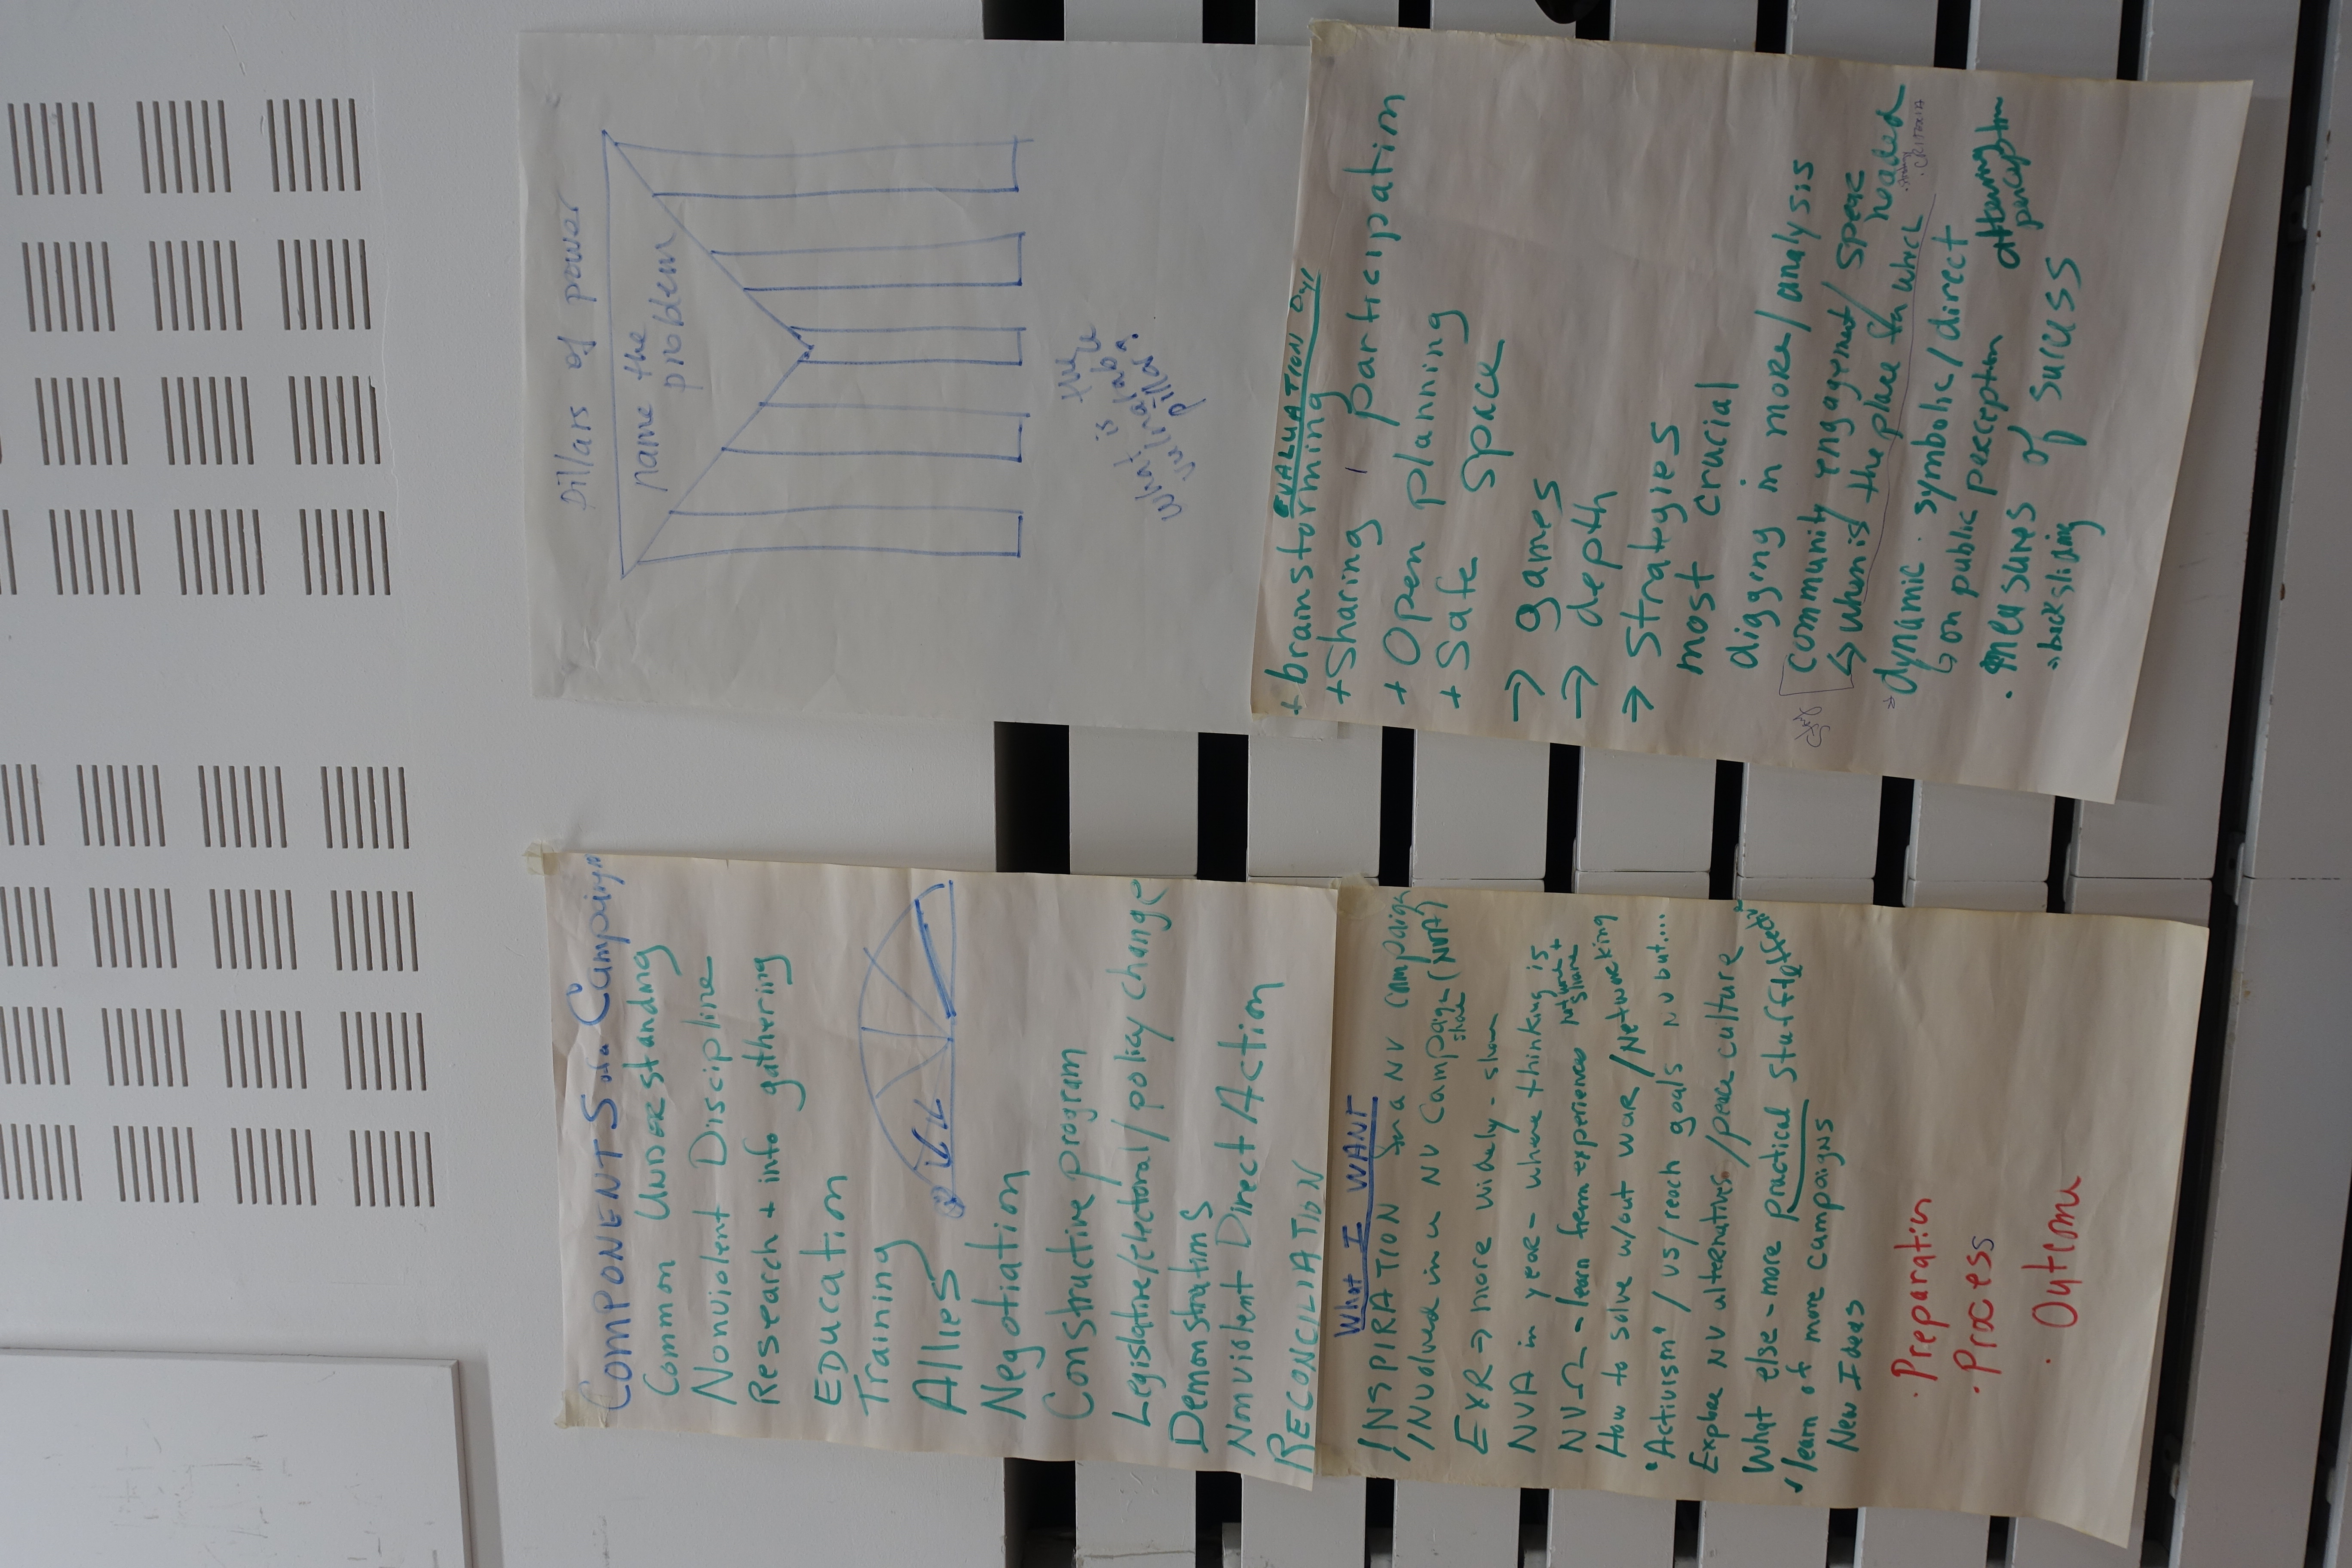 COMPONENTS of a Campaign
Common UNDERstanding
Nonviolent Discipline
Research + info gathering
EDucation
Training
Allies
Negotiation
Constructive program
Legislative/electoral/policy change
Demonstrations
Nonviolent Direct Action
RECONCILIATION
Pillars of power
name the
problem
what is the
vulnerable
pillar?
What I WANT
INSPIRATION for a NV campaign
INVolved in a NV Campaign (NVA)
share
ExR → more widely - share
NVA in year - where thinking is
NVΩ - learn from experiences network + share
How to solve w/out war/Networking
"Activism" / us/reach goals NV but....
Explore NV alternatives/peace culture
What else - more practical stuff
learn of more campaigns
New Ideas
· Preparation
· Process
· Outcome
EVALUATION Day 1
+ brainstorming
+ Sharing, participation
+ Open planning
+ Safe space
→ games
→ depth
→ strategies
most crucial
digging in more/analysis
community engagement/
↳ whom is the place for which
CRITERIA
dynamic · symbolic/direct
↳ on public perception
· measures of success
→ backsliding